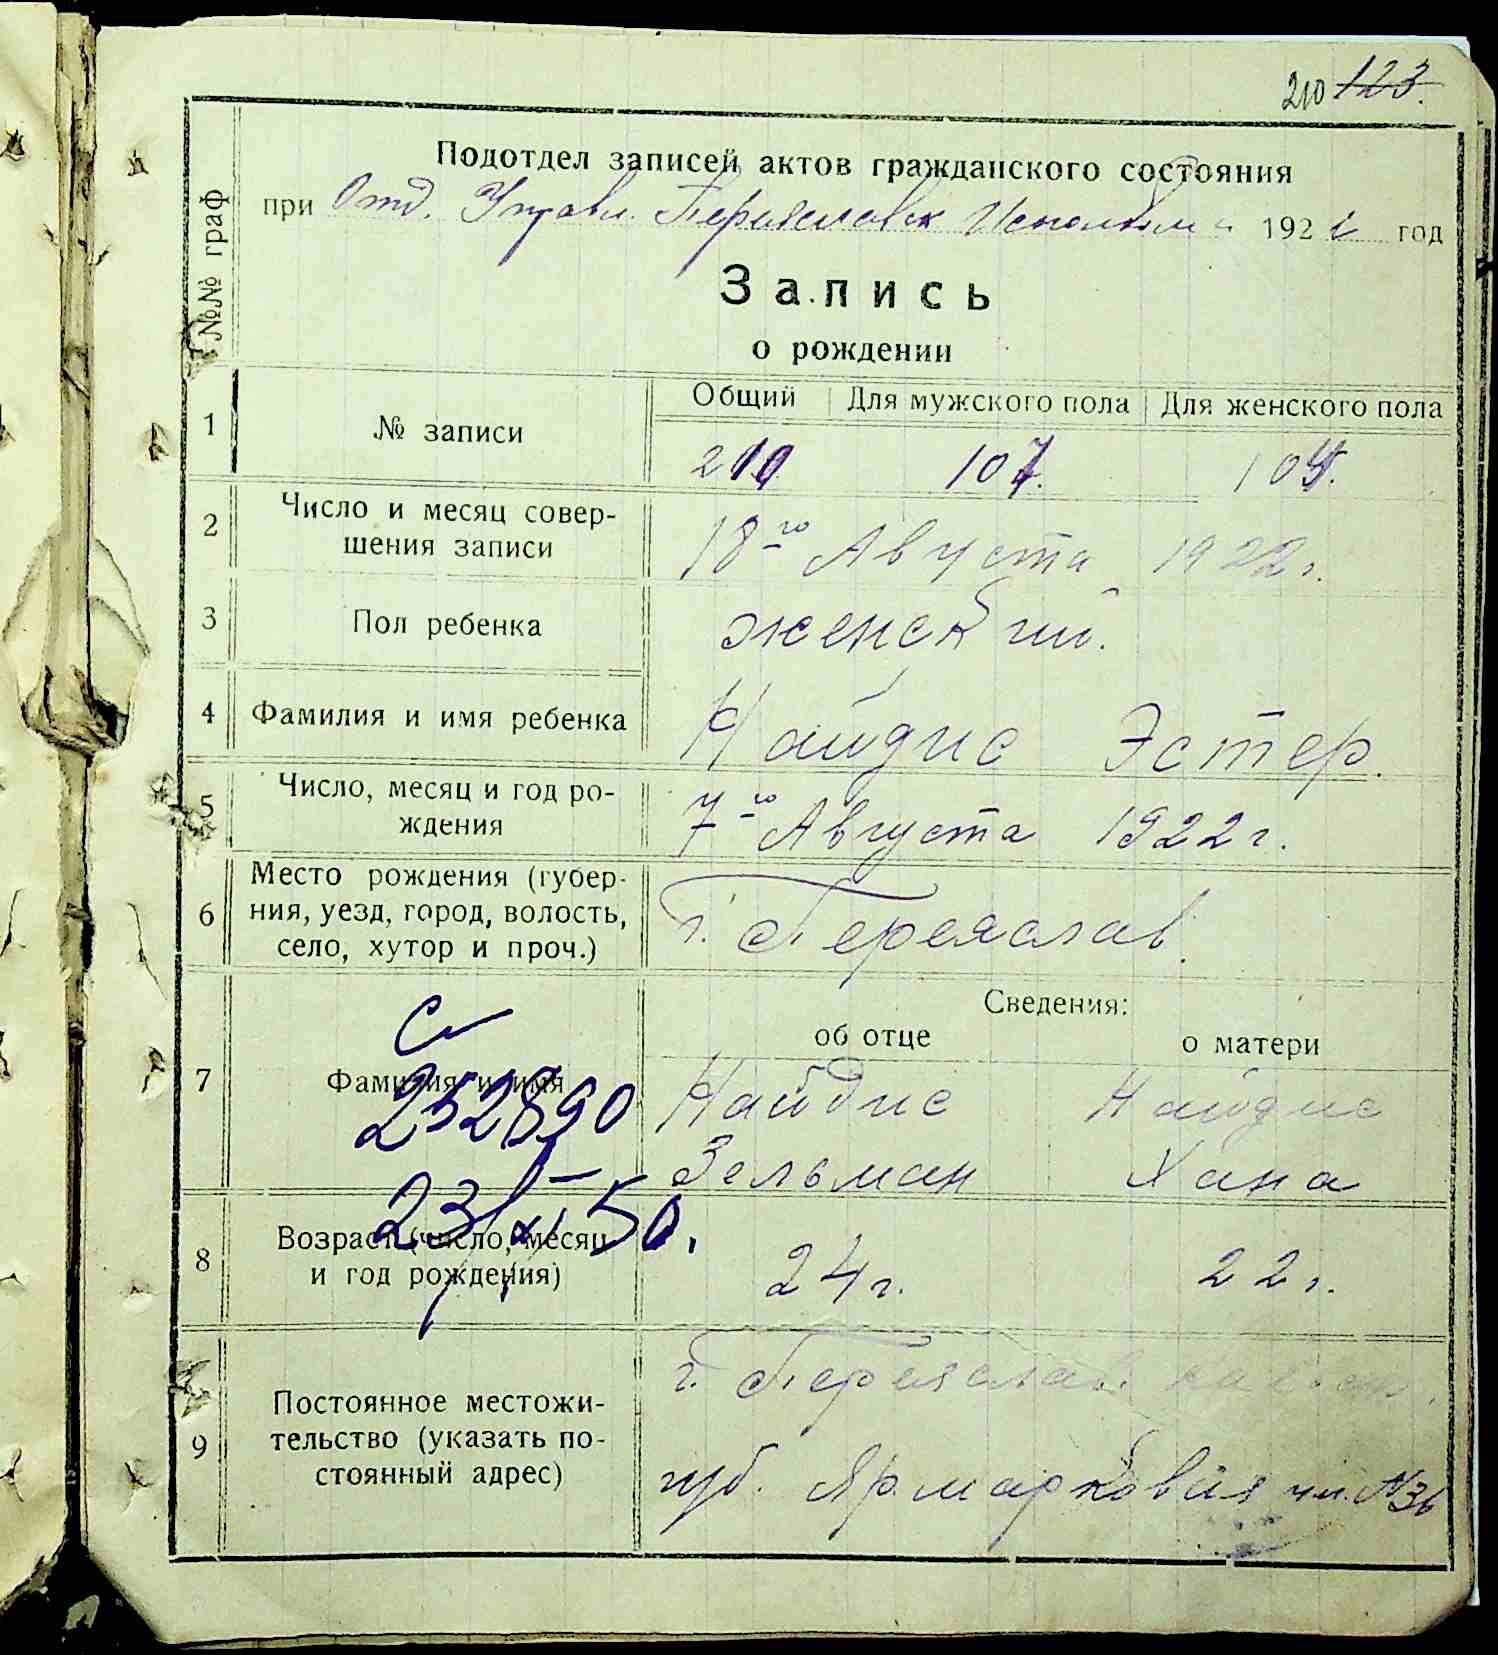 210 123.
Подотдел записей актов гражданского состояния
при Отд. Управл. Переяславск Исполкома 1922 год
№№ граф
Запись
о рождении
1 № записи
Общий Для мужского пола Для женского пола
210 107. 104.
2 Число и месяц совер-
шения записи
18го Августа 1922 г.
3 Пол ребенка
женский.
4 Фамилия и имя ребенка
Найдис Эстер.
5 Число, месяц и год ро-
ждения
7го Августа 1922 г.
6 Место рождения (губер-
ния, уезд, город, волость,
село, хутор и проч.)
г. Переяслав.
Сведения:
об отце о матери
7 Фамилия и имя
Найдис Найдис
Зельман Хана
252890
23/XI 50.
8 Возраст (число, месяц
и год рождения)
24 г. 22 г.
9 Постоянное местожи-
тельство (указать по-
стоянный адрес)
г. Переяслав
губ. Ярмарковая ул. №36